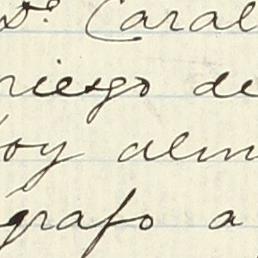 Dº. Caral
riesgo de
oy alm
grafo a